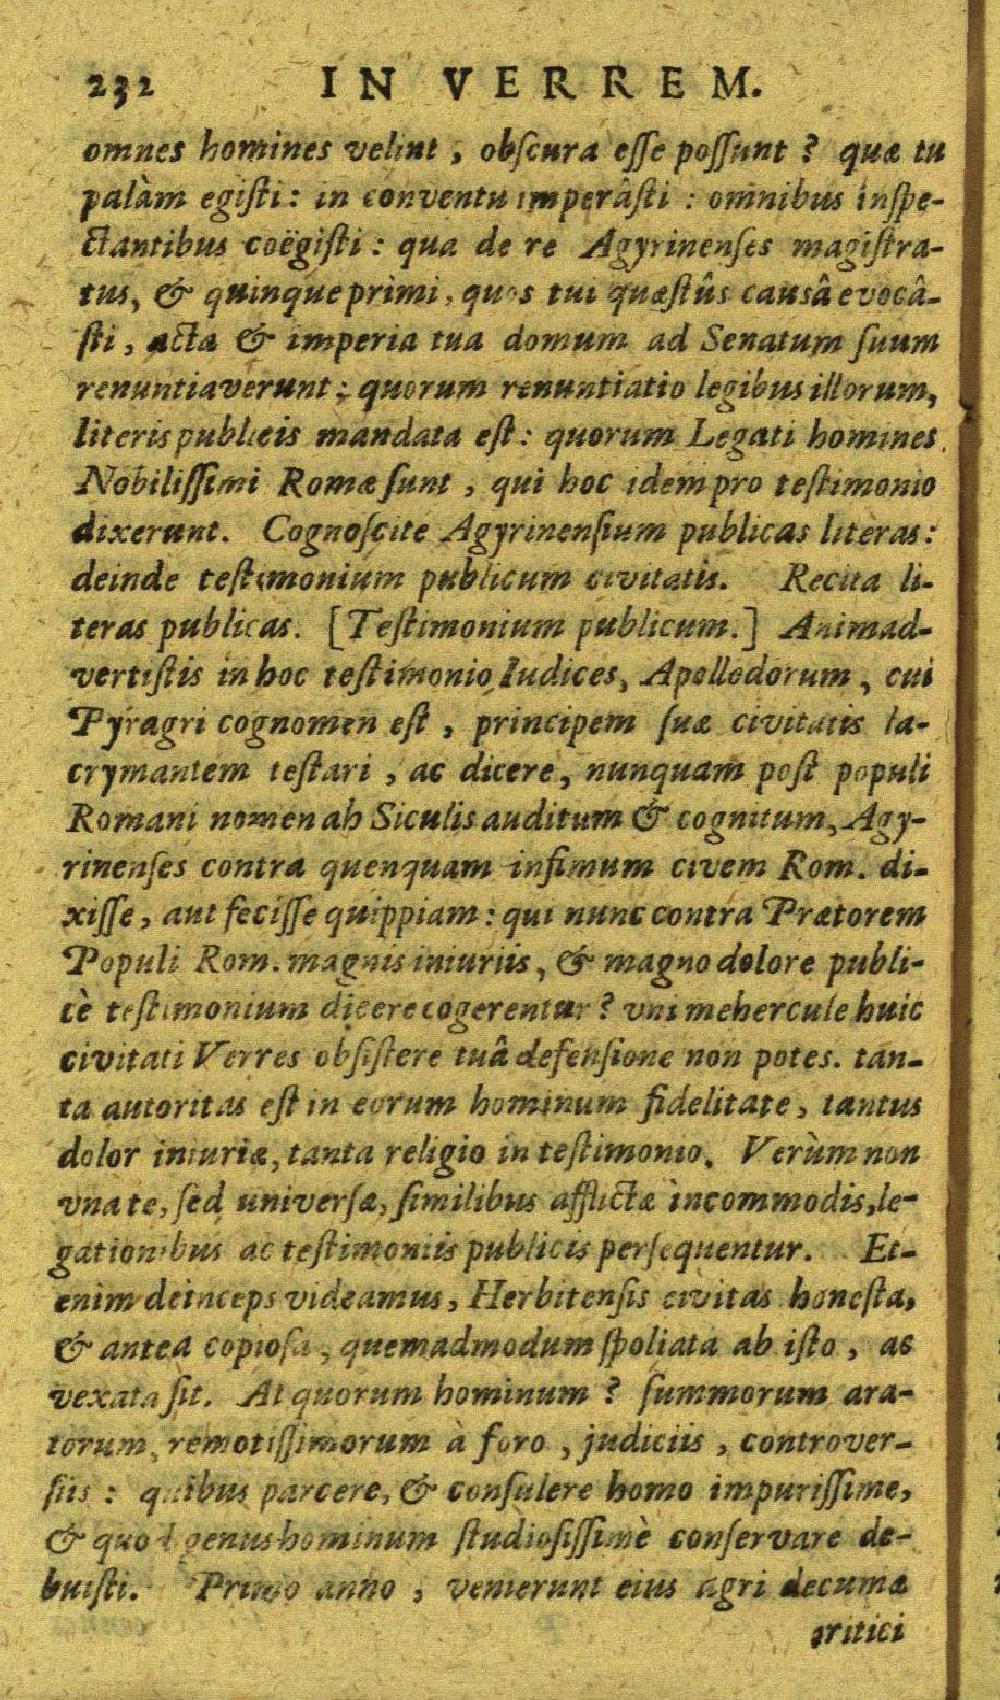 232 IN VERREM.
omnes homines velint, obſcura eſſe poſſunt? quæ tu
palàm egiſti: in conventu imperâſti: omnibus inſpe-
ctantibus coëgiſti: qua de re Agyrinenſes magiſtra-
tus, & quinque primi, quos tui quæſtûs causâ evocâ-
ſti, acta & imperia tua domum ad Senatum ſuum
renuntiaverunt: quorum renuntiatio legibus illorum,
literis publicis mandata eſt: quorum Legati homines
Nobiliſſimi Romæ ſunt, qui hoc idem pro teſtimonio
dixerunt. Cognoſcite Agyrinenſium publicas literas:
deinde teſtimonium publicum civitatis. Recita li-
teras publicas. [Teſtimonium publicum.] Animad-
vertiſtis in hoc teſtimonio Iudices, Apollodorum, cui
Pyragri cognomen eſt, principem ſuæ civitatis la-
crymantem teſtari, ac dicere, nunquam poſt populi
Romani nomen ab Siculis auditum & cognitum, Agy-
rinenſes contra quenquam infimum civem Rom. di-
xiſſe, aut feciſſe quippiam: qui nunc contra Prætorem
Populi Rom. magnis iniuriis, & magno dolore publi-
cè teſtimonium dicere cogerentur? vni mehercule huic
civitati Verres obſiſtere tuâ defenſione non potes. tan-
ta autoritas eſt in eorum hominum fidelitate, tantus
dolor iniuriæ, tanta religio in teſtimonio. Verùm non
vna te, ſed univerſæ, ſimilibus afflictæ incommodis, le-
gationibus ac teſtimoniis publicis perſequentur. Et-
enim deinceps videamus, Herbitenſis civitas honeſta,
& antea copioſa, quemadmodum ſpoliata ab iſto, ac
vexata ſit. At quorum hominum? ſummorum ara-
torum, remotiſſimorum à foro, judiciis, controver-
ſiis: quibus parcere, & conſulere homo impuriſſime,
& quod genus hominum ſtudioſiſſimè conſervare de-
buiſti. Primo anno, venierunt eius agri decumæ
tritici